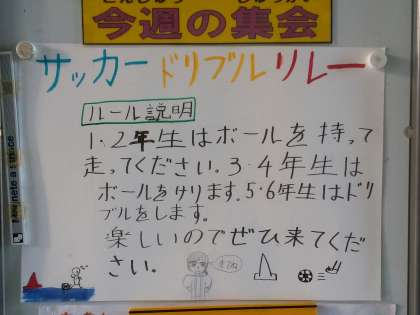 今週の集会
サッカードリブルリレー
ルール説明
1・2年生はボールを持って
走ってください。3・4年生は
ボールをけります。5・6年生はドリ
ブルをします。
楽しいのでぜひ来てくだ
さい。
きてね